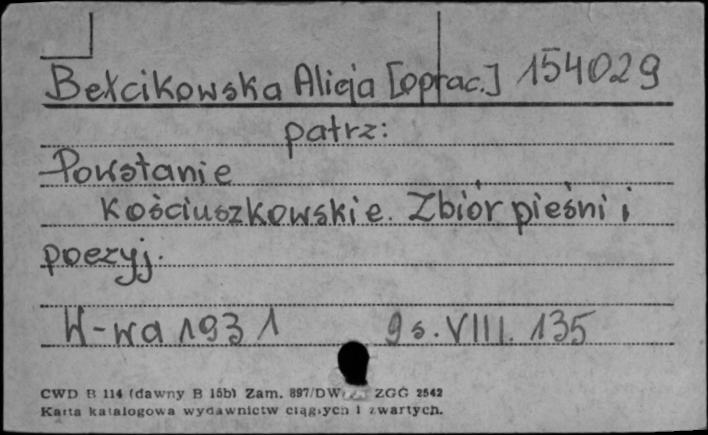 Bełcikowska Alicja [oprac.] 154029
patrz:
Powstanie
Kościuszkowskie. Zbiór pieśni i
poezyj.
W-wa 1931 9 s. VIII. 135
CWD B 114 (dawny B 15b) Zam. 897/DW ZGG 2542
Karta katalogowa wydawnictw ciągłych i zwartych.